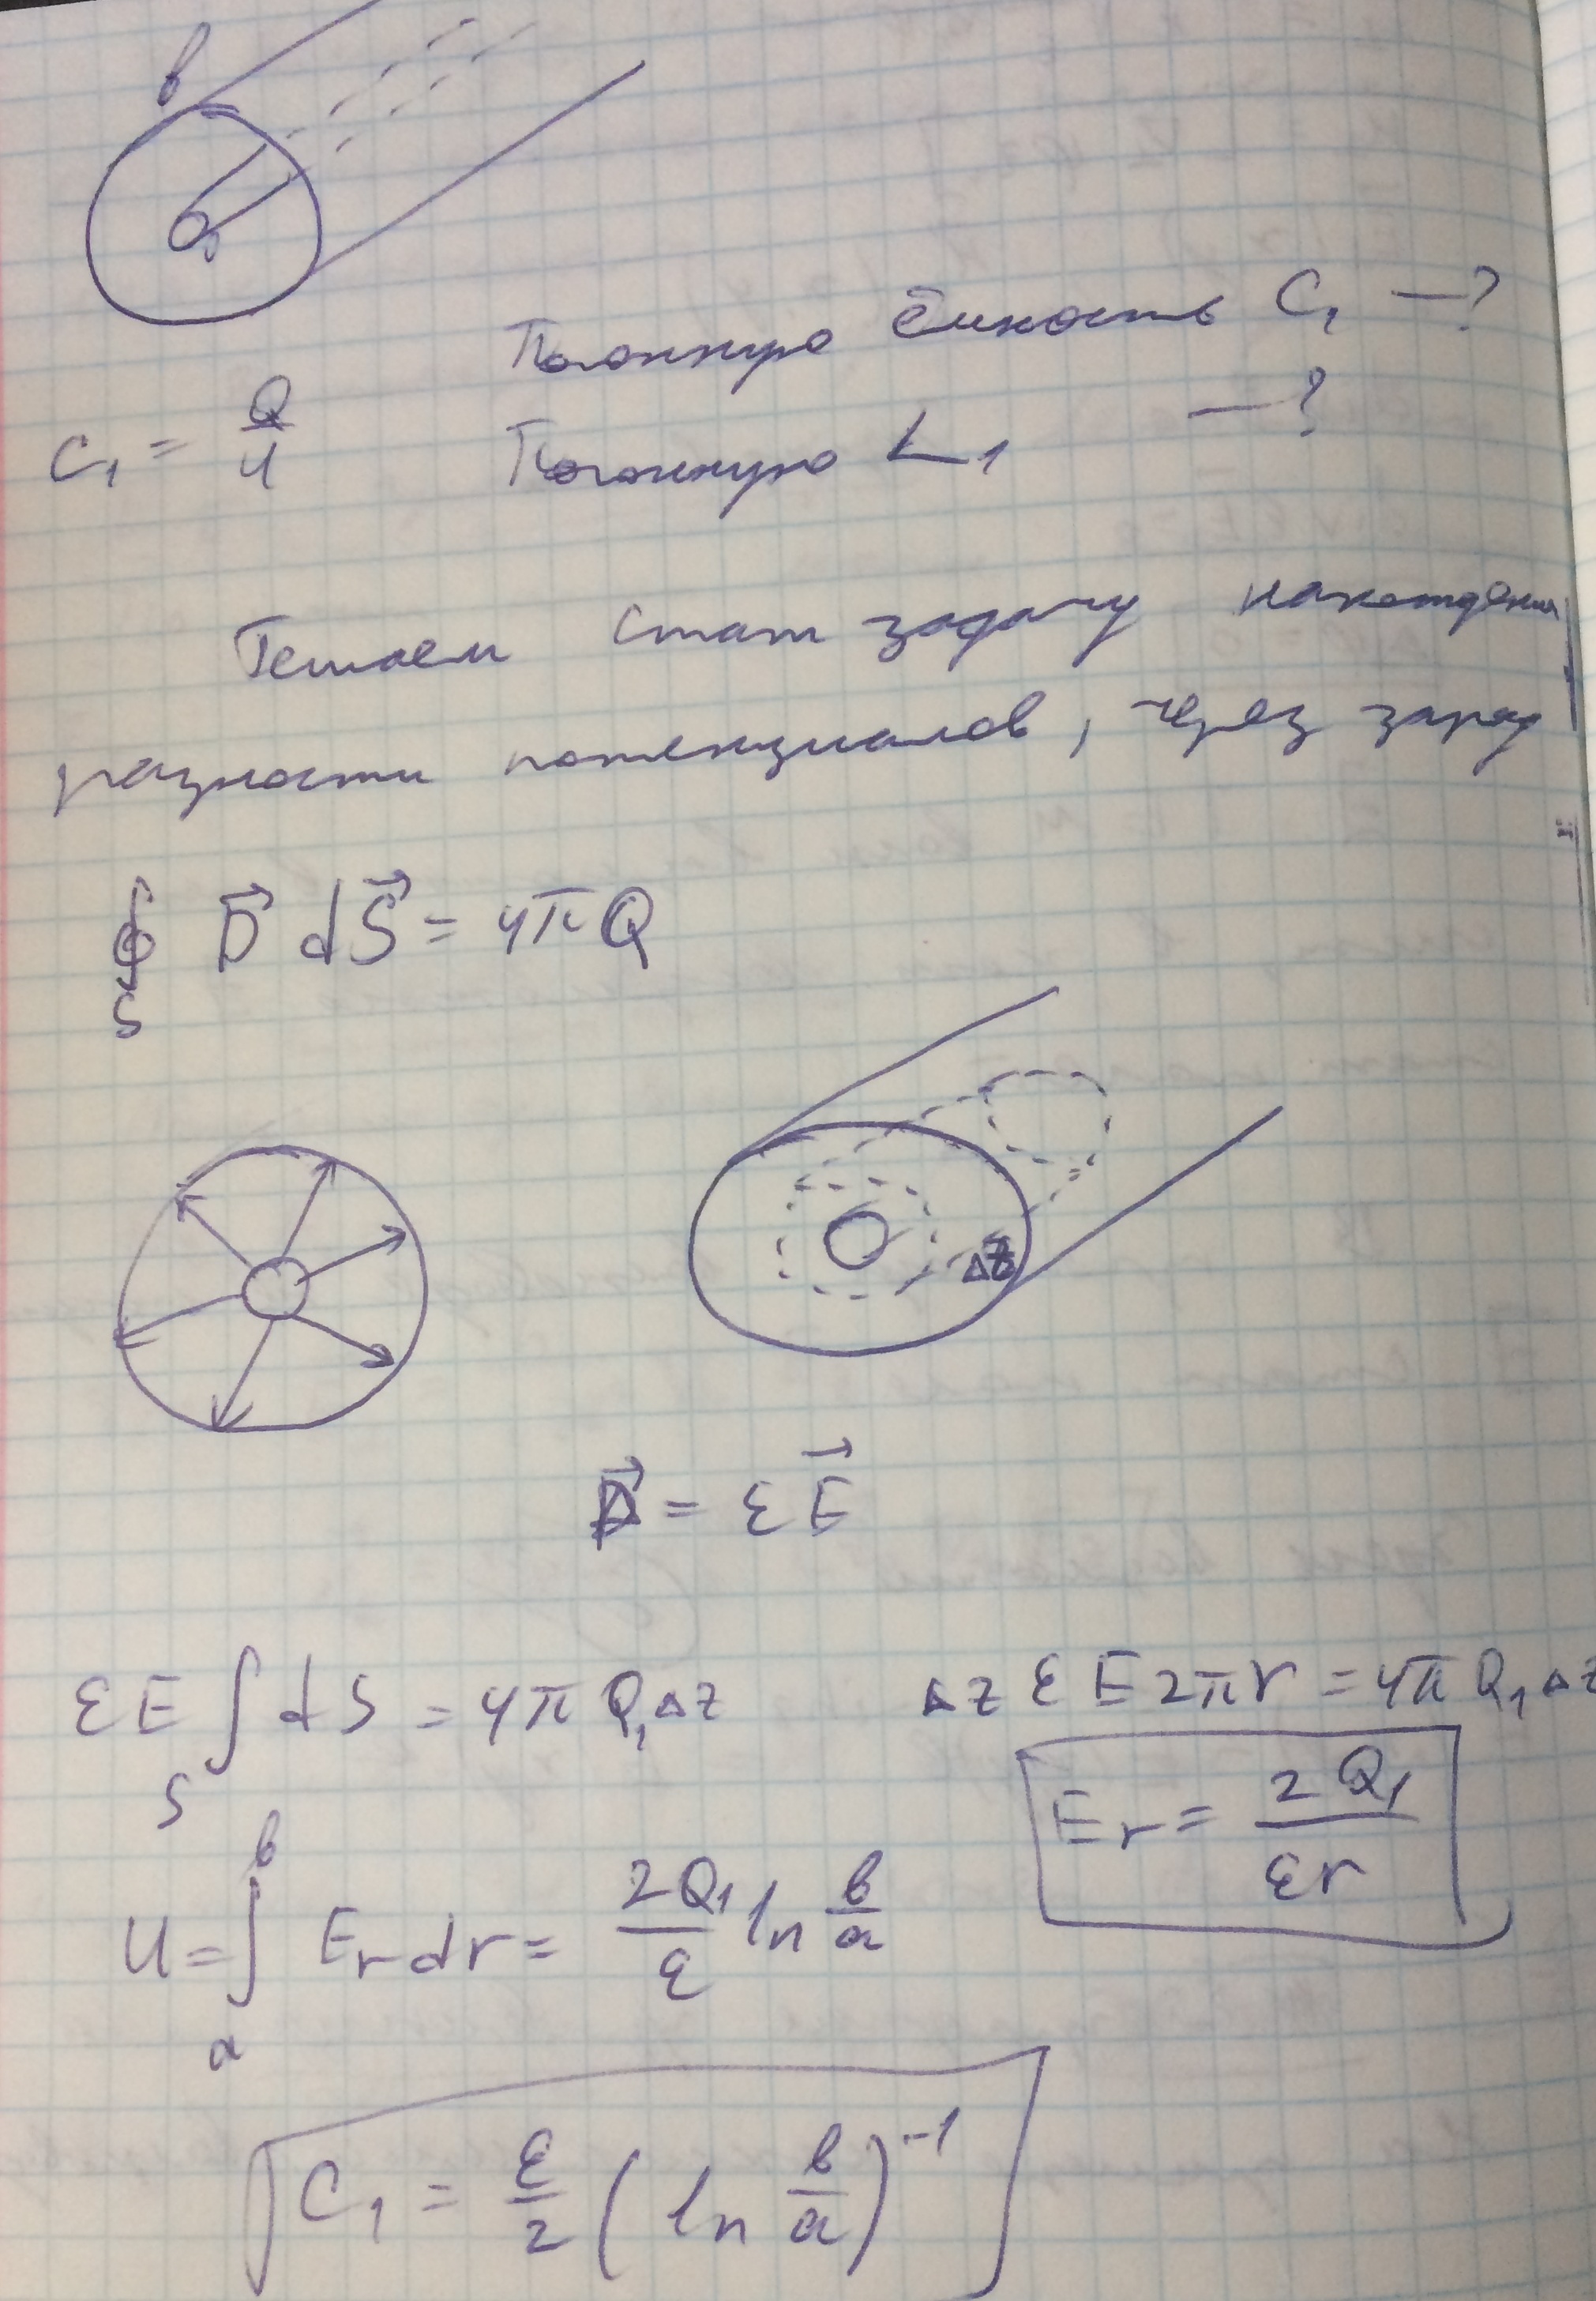 в
a
Погонную ёмкость C₁ —?
C₁ = Q/U
Погонную L₁ —?
Решаем стат задачу нахождения
разности потенциалов, через заряд
∮_S D⃗ dS⃗ = 4πQ
Δz
D⃗ = εE⃗
εE ∫_S dS = 4πQ₁Δz
Δz εE2πr = 4πQ₁Δz
E_r = 2Q₁/εr
U = ∫_a^в E_r dr = 2Q₁/ε ln в/a
C₁ = ε/2 (ln в/a)⁻¹